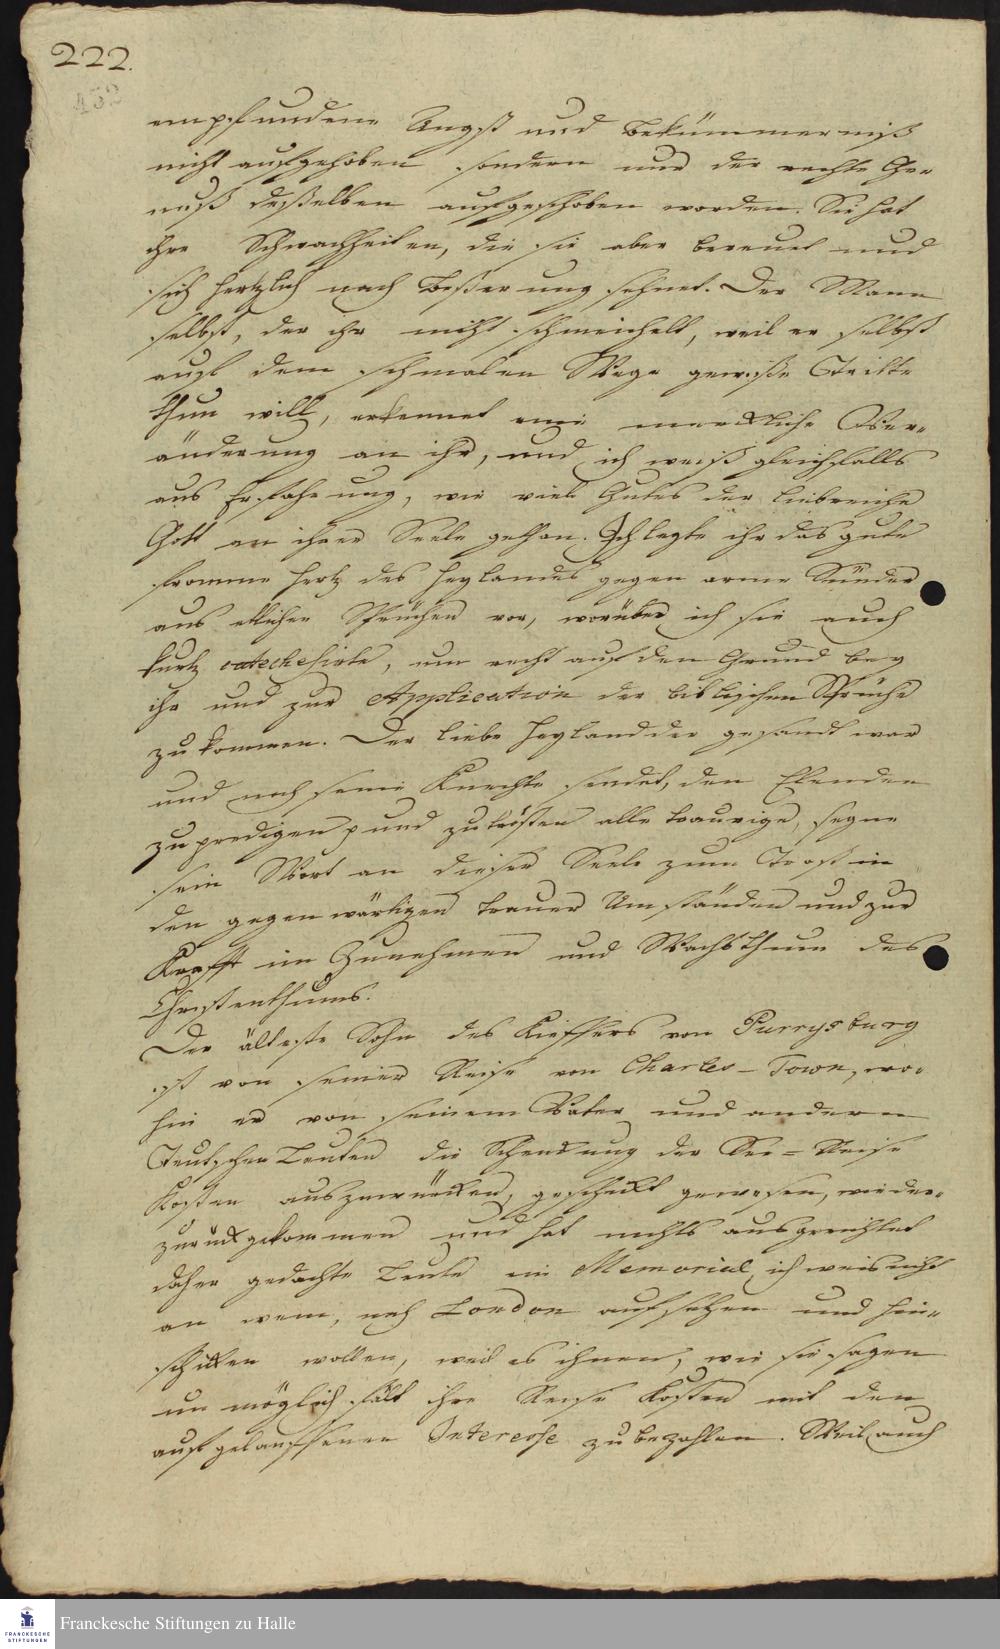 222.
432
empfundene Angst und Bekümmerniß
nicht aufgehoben sondern nur der rechte Ge¬
nuß deßelben aufgeschoben worden. Sie hat
ihre Schwachheiten, die sie aber bereuet und
sich hertzlich nach Beßerung sehnet. Der Mann
selbst, der ihr nicht schmeichelt, weil er selbst
auf dem schmalen Wege gewiße Tritte
thun will, erkennet eine merckliche Ver¬
änderung an ihr, und ich weiß gleichfalls
aus Erfahrung, wie viel Gutes der liebreiche
Gott an ihrer Seele gethan. Ich legte ihr das gute
fromme Hertz des Heylandes gegen arme Sünder
aus etlichen Sprüchen vor, worüber ich sie auch
kurtz catechesirte, um recht auf den Grund bey
ihr und zur Application der biblischen Sprüche
zu kommen. Der liebe Heyland der gesandt war
und noch seine Knechte sendet, den Elenden
zu predigen p und zu trösten alle traurige, segne
sein Wort an dieser Seele zum Trost in
den gegenwärtigen trauer Umständen und zur
Krafft im Zunehmen und Wachsthum des
Christenthums.
Der älteste Sohn des Kieffers von Purrysburg
ist von seiner Reise von Charles-Town, wo¬
hin er von seinem Vater und andern
Teutschen Leuten die Schenkung der See-Reise
Kosten auszuwürcken, geschickt gewesen, wieder¬
zurückgekommen und hat nichts ausgerichtet
daher gedachte Leute ein Memorial, ich weis nicht
an wem, nach London aufsetzen und hin¬
schicken wollen, weil es ihnen, wie sie sagen
unmöglich fält ihre Reise Kosten mit den
aufgelauffenen Interesse zu bezahlen. Weil auch
FRANCKESCHE STIFTUNGEN
Franckesche Stiftungen zu Halle